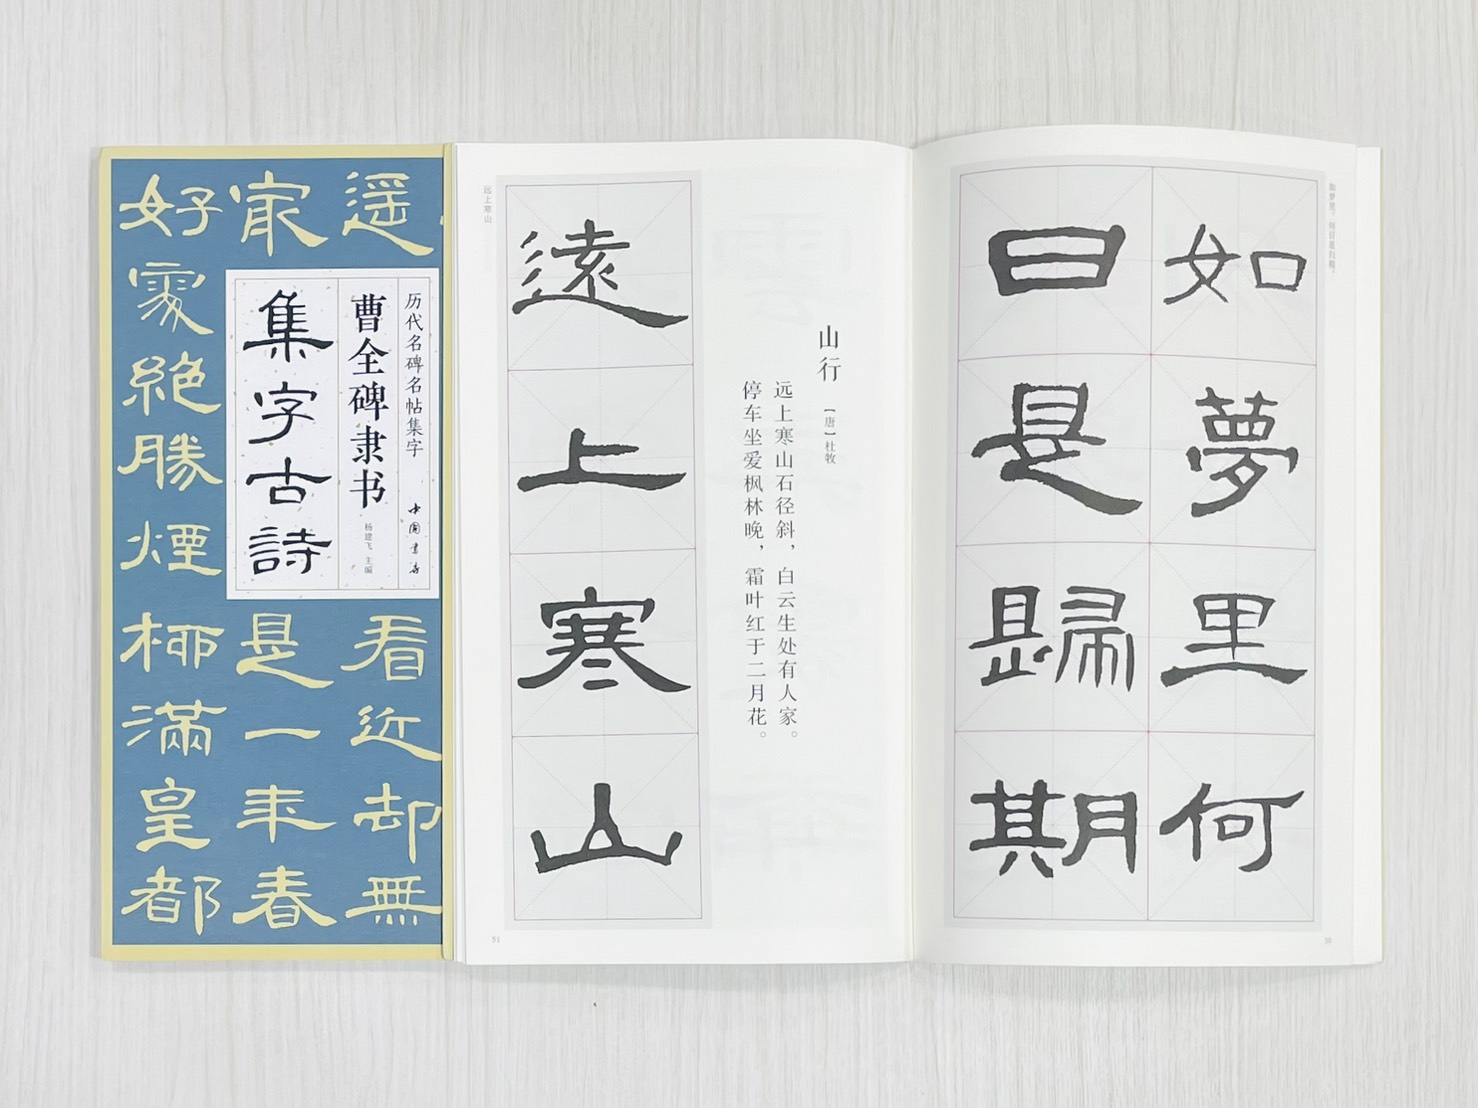 遥看近却無
冣是一年春
好處絶勝煙柳滿皇都
历代名碑名帖集字
中国书店
曹全碑隶书
杨建飞 主编
集字古詩
如梦里，何日是归期。
如夢里何
日是歸期
山行
【唐】杜牧
远上寒山石径斜，白云生处有人家。
停车坐爱枫林晚，霜叶红于二月花。
遠上寒山
远上寒山
51